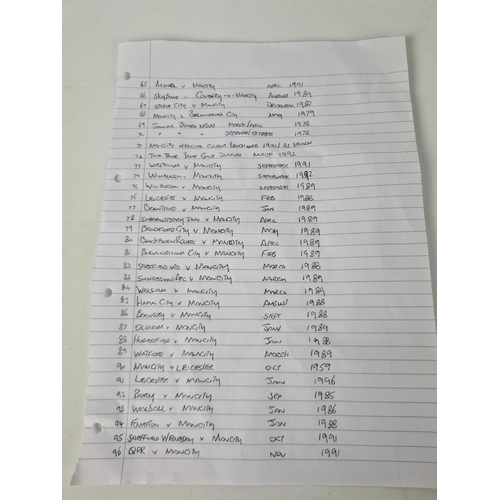 65 Arsenal v Mancity April 1991
66 Sky Blue - Coventry v Mancity August 1989
67 Stoke City v Mancity December 1987
68 Mancity v Birmingham City May 1979
69 Junior Blues News March/April 1976
70 " " " September/October 1976
71 Mancity Official Brochure 1991/92
72 Blue Dinner March 1992
73 Westham v Mancity September 1991
74 Wimbledon v Mancity September 1992
75 Wimbledon v Mancity 1989
76 Leicester v Mancity Feb 1988
77 Brentford v Mancity Jan 1989
78 Shrewsbury Town v Mancity April 1989
79 Bradford City v Mancity May 1989
80 Blackburn Rovers v Mancity April 1989
81 Birmingham City v Mancity Feb 1989
82 Sheffield Utd v Mancity March 1988
83 Sunderland AFC v Mancity March 1989
84 Walsall v Mancity March 1989
85 Hull City v Mancity August 1988
86 Barnsley v Mancity Sept 1988
87 Oldham v Mancity Jan 1989
88 Huddersfield v Mancity Jan 1988
89 Watford v Mancity March 1989
90 Mancity v Leicester Oct 1959
91 Leicester v Mancity Jan 1996
92 Bury v Mancity Sep 1985
93 Walsall v Mancity Jan 1986
94 Everton v Mancity Jan 1988
95 Sheffield Wednesday v Mancity Oct 1991
96 QPR v Mancity Nov 1991